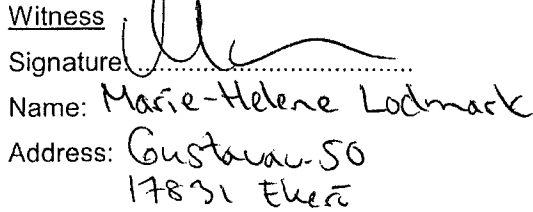 Witness
Signature:
Name: Marie-Helene Lodmark
Address: Gustavav. 50
17831 Ekerö